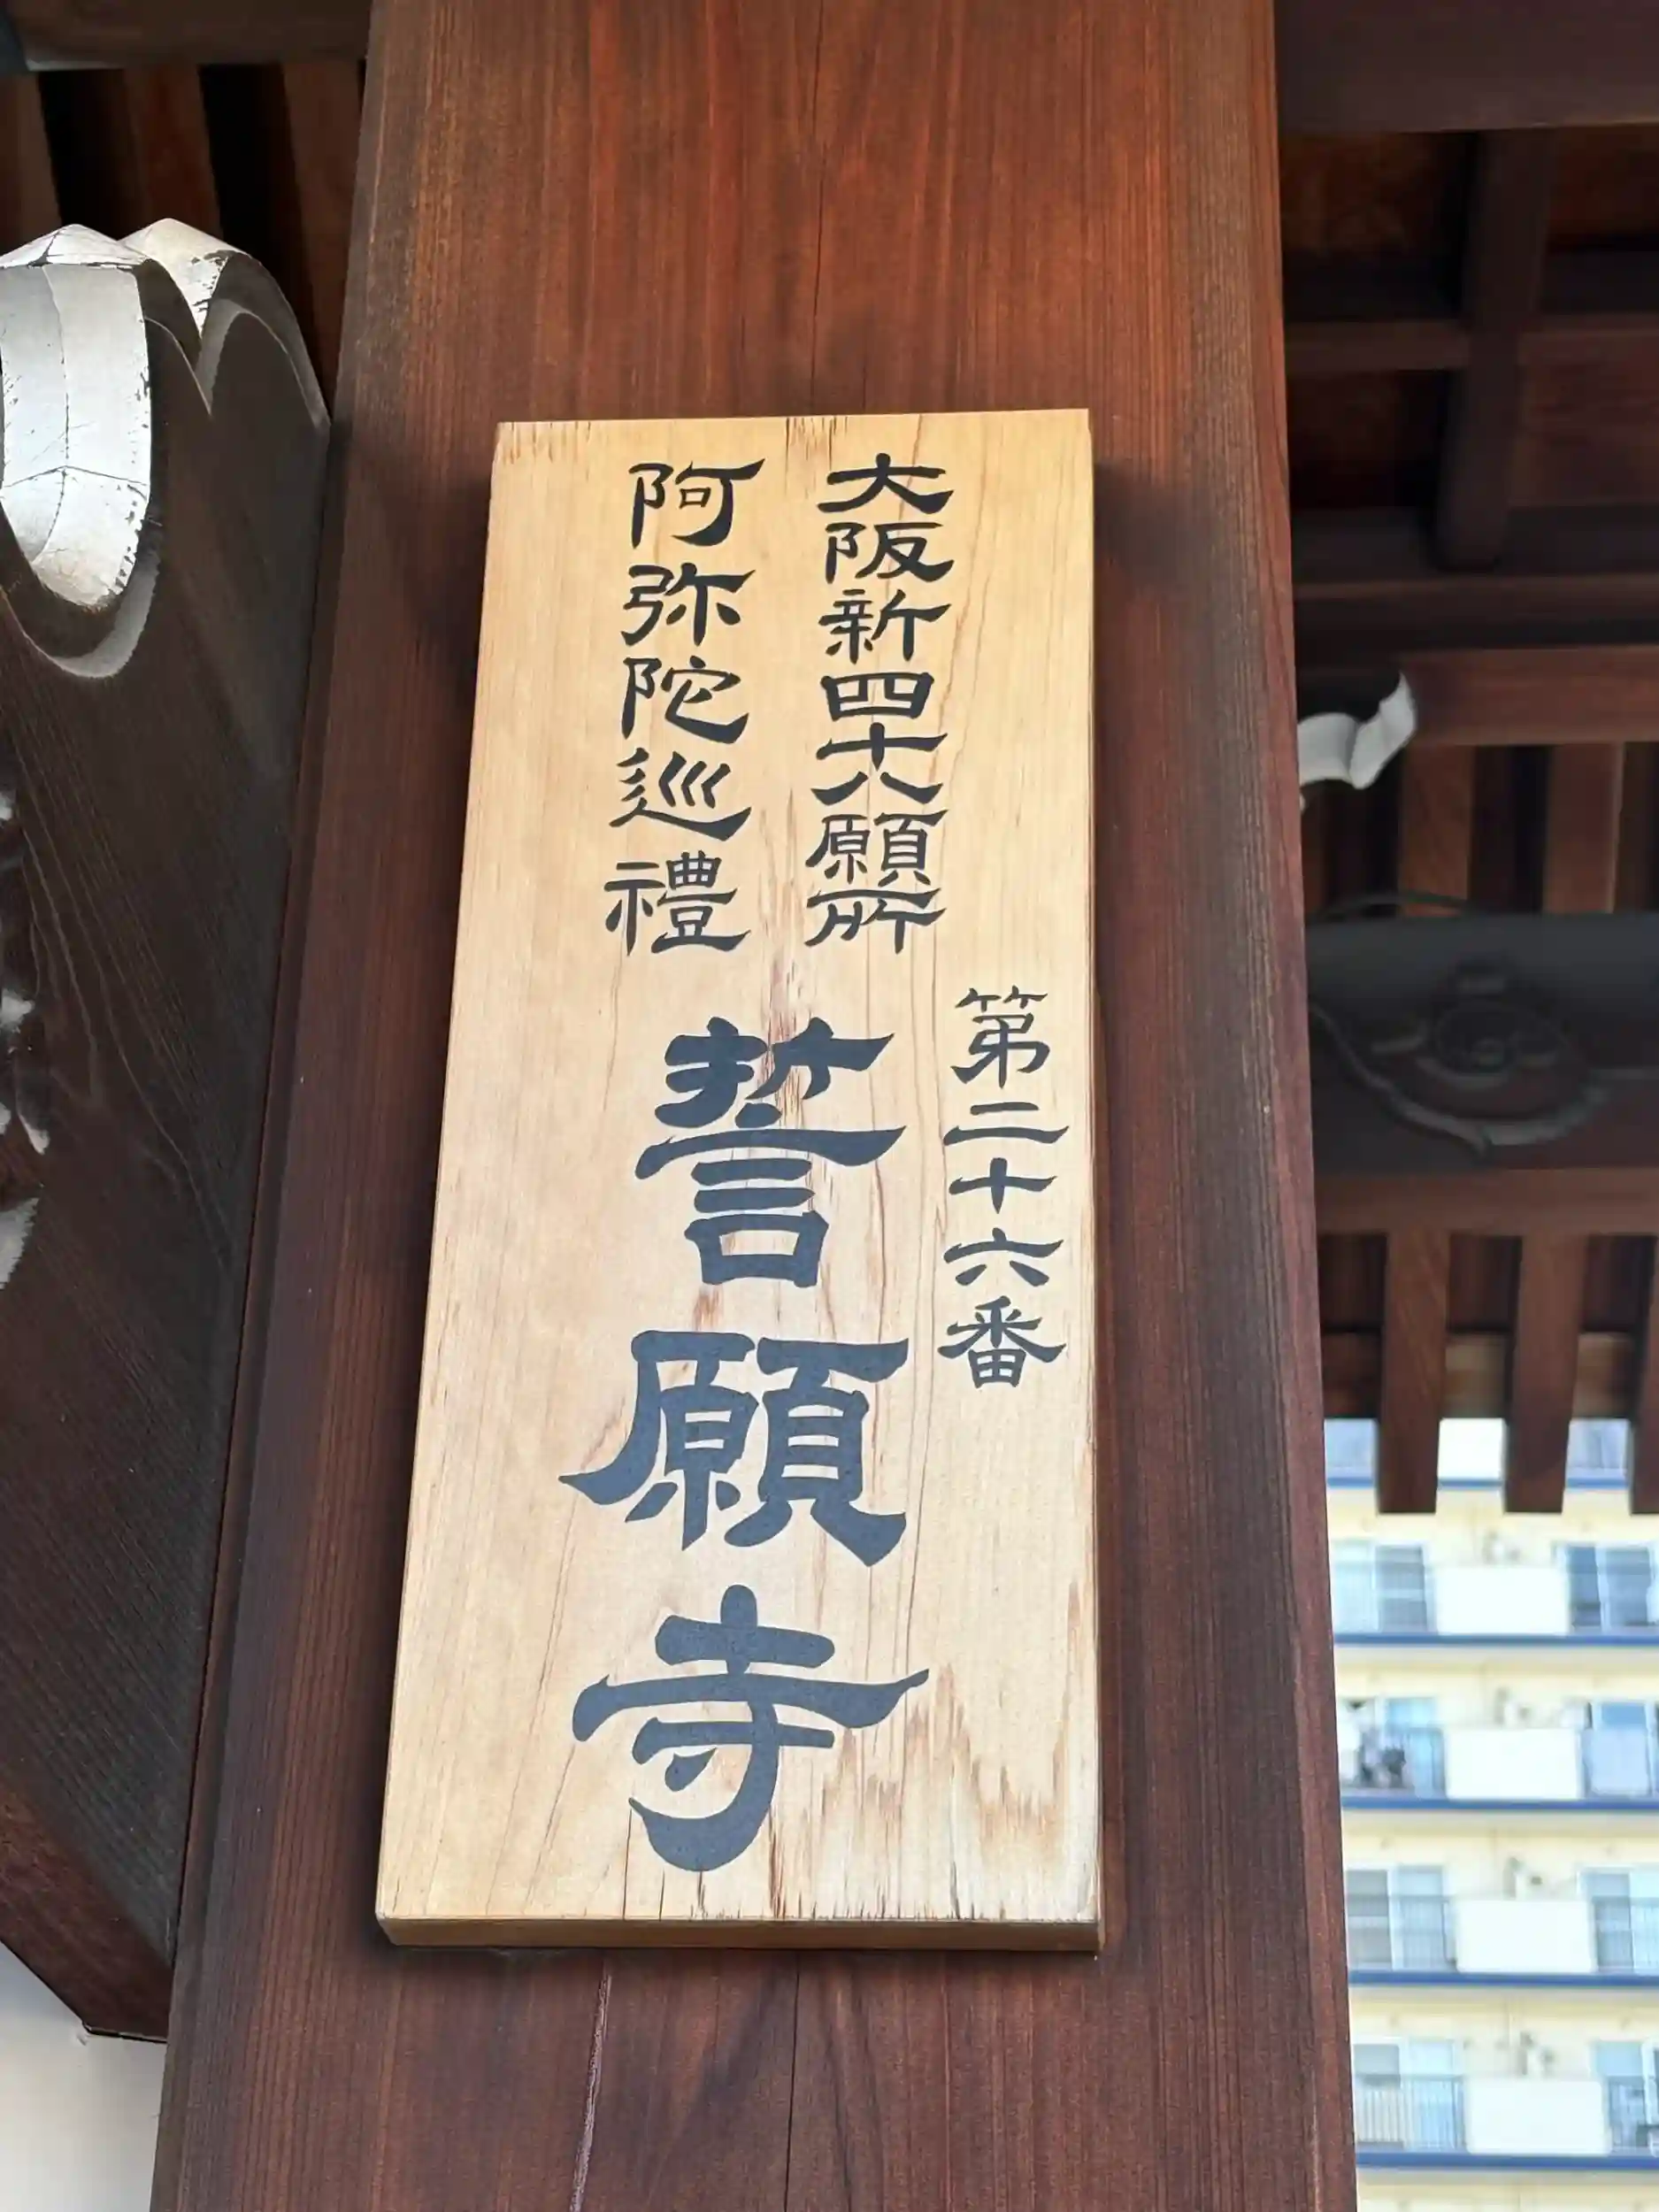 大阪新四十八願所
阿弥陀巡禮
第二十六番
誓願寺